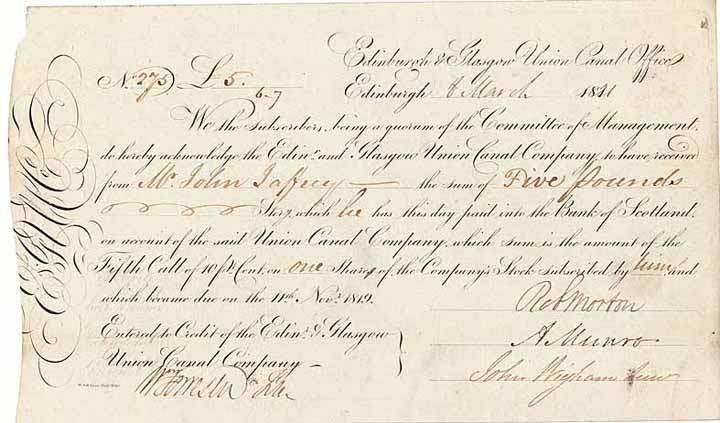 Edinburgh & Glasgow Union Canal Office
No. 275 £5.
6-7
Edinburgh 6 March 1821
We the subscribers, being a quorum of the Committee of Management,
do hereby acknowledge the Edinr. and Glasgow Union Canal Company, to have received
from Mr. John Jafrey — the sum of Five pounds
Sterg. which he has this day paid into the Bank of Scotland,
on account of the said Union Canal Company, which sum is the amount of the
Fifth Call of 10 pr. Cent, on one Shares of the Company's Stock subscribed by him, and
which became due on the 11th. Novr. 1819.
Robt Morton
Entered to Credit of the Edinr. & Glasgow
A Munro
Union Canal Company —
John Wigham Junr